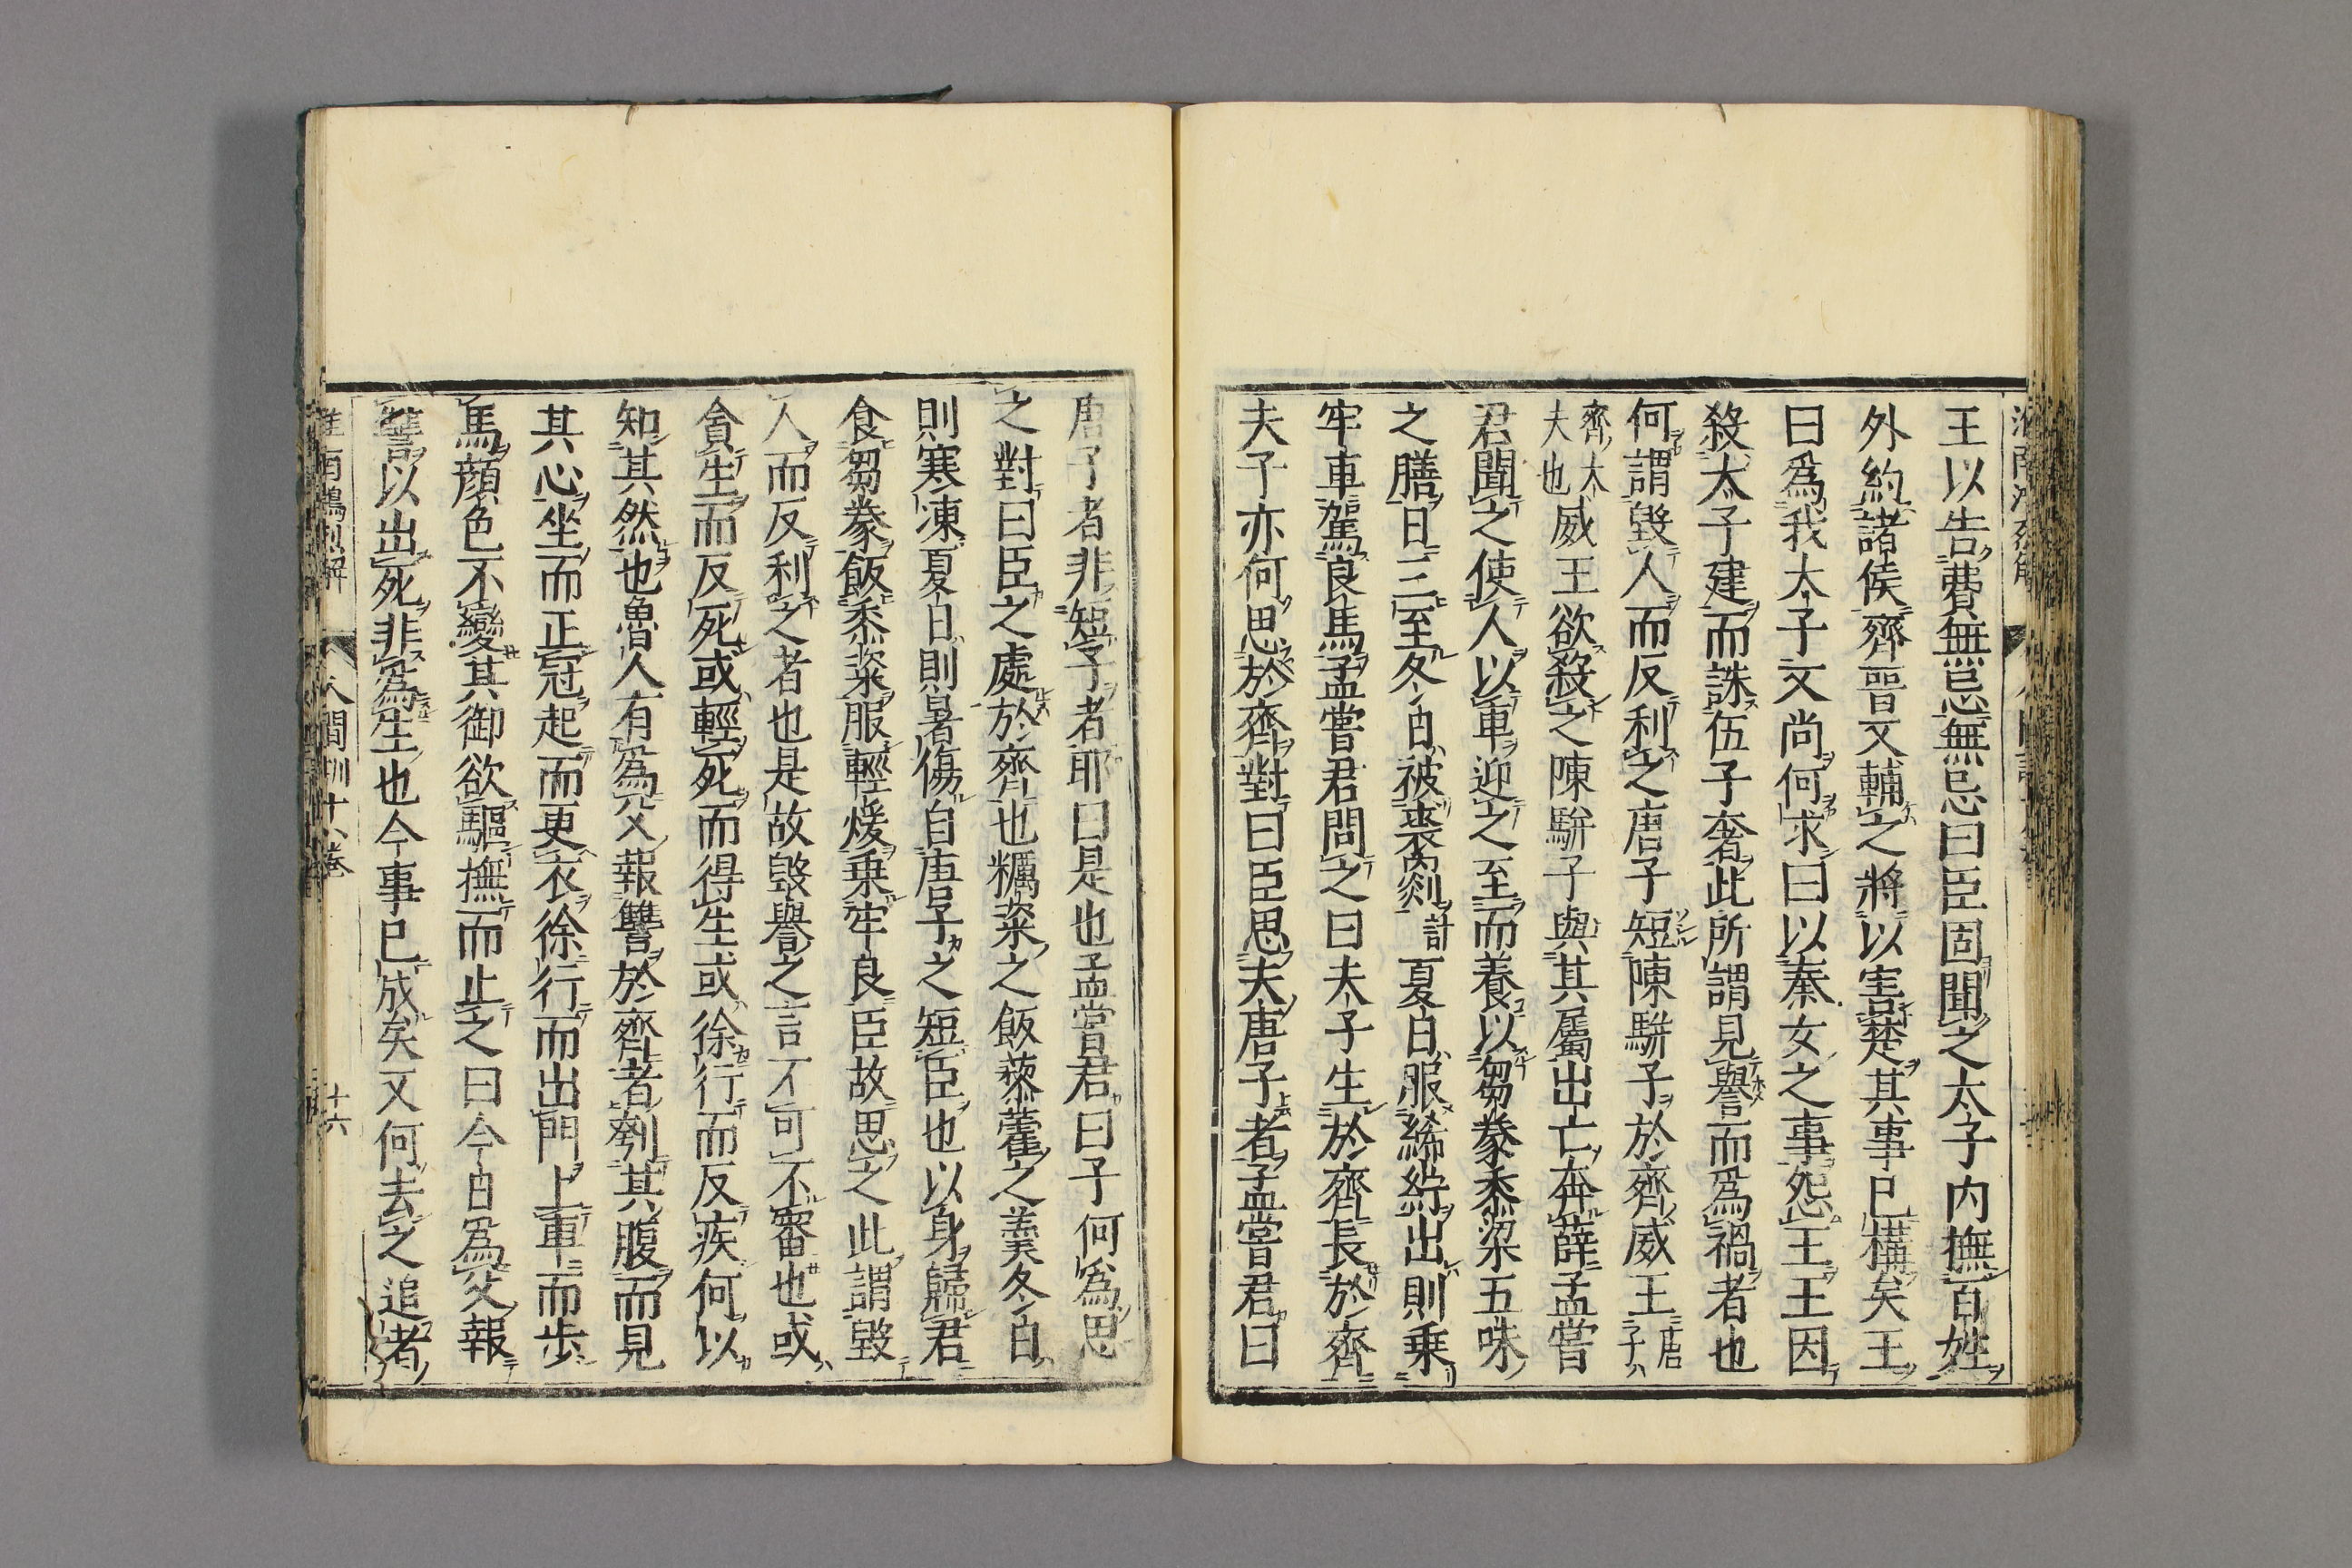 王以告費無忌無忌曰臣固聞之太子内撫百姓
外約諸侯齊晋又輔之將以害楚其事已構矣王
曰爲我太子又尚何求曰以秦女之事怨王王因
殺太子建而誅伍子奢此所謂見譽而爲禍者也
何謂毀人而反利之唐子短陳駢子於齊威王唐子
齊大夫也威王欲殺之陳駢子與其屬出亡奔薛孟嘗
君聞之使人以車迎之至而養以芻豢黍粱五味
之膳日三至冬日被裘罽計夏日服絺紵出則乗
牢車駕良馬孟嘗君問之曰夫子生於齊長於齊
夫子亦何思於齊對曰臣思夫唐子者孟嘗君曰
唐子者非短子者耶曰是也孟嘗君曰子何爲思
之對曰臣之處於齊也糲粢之飯藜藿之羹冬日
則寒凍夏日則暑傷自唐子之短臣也以身歸君
食芻豢飯黍粢服輕煖乗牢良臣故思之此謂毀
人而反利之者也是故毀譽之言不可不審也或
貪生而反死或輕死而得生或徐行而反疾何以
知其然也魯人有爲父報讐於齊者刳其腹而見
其心坐而正冠起而更衣徐行而出門上車而歩
馬顔色不變其御欲驅撫而止之曰今日爲父報
讐以出死非爲生也今事已成矣又何去之追者
淮南鴻烈解 人間訓十八巻 十六